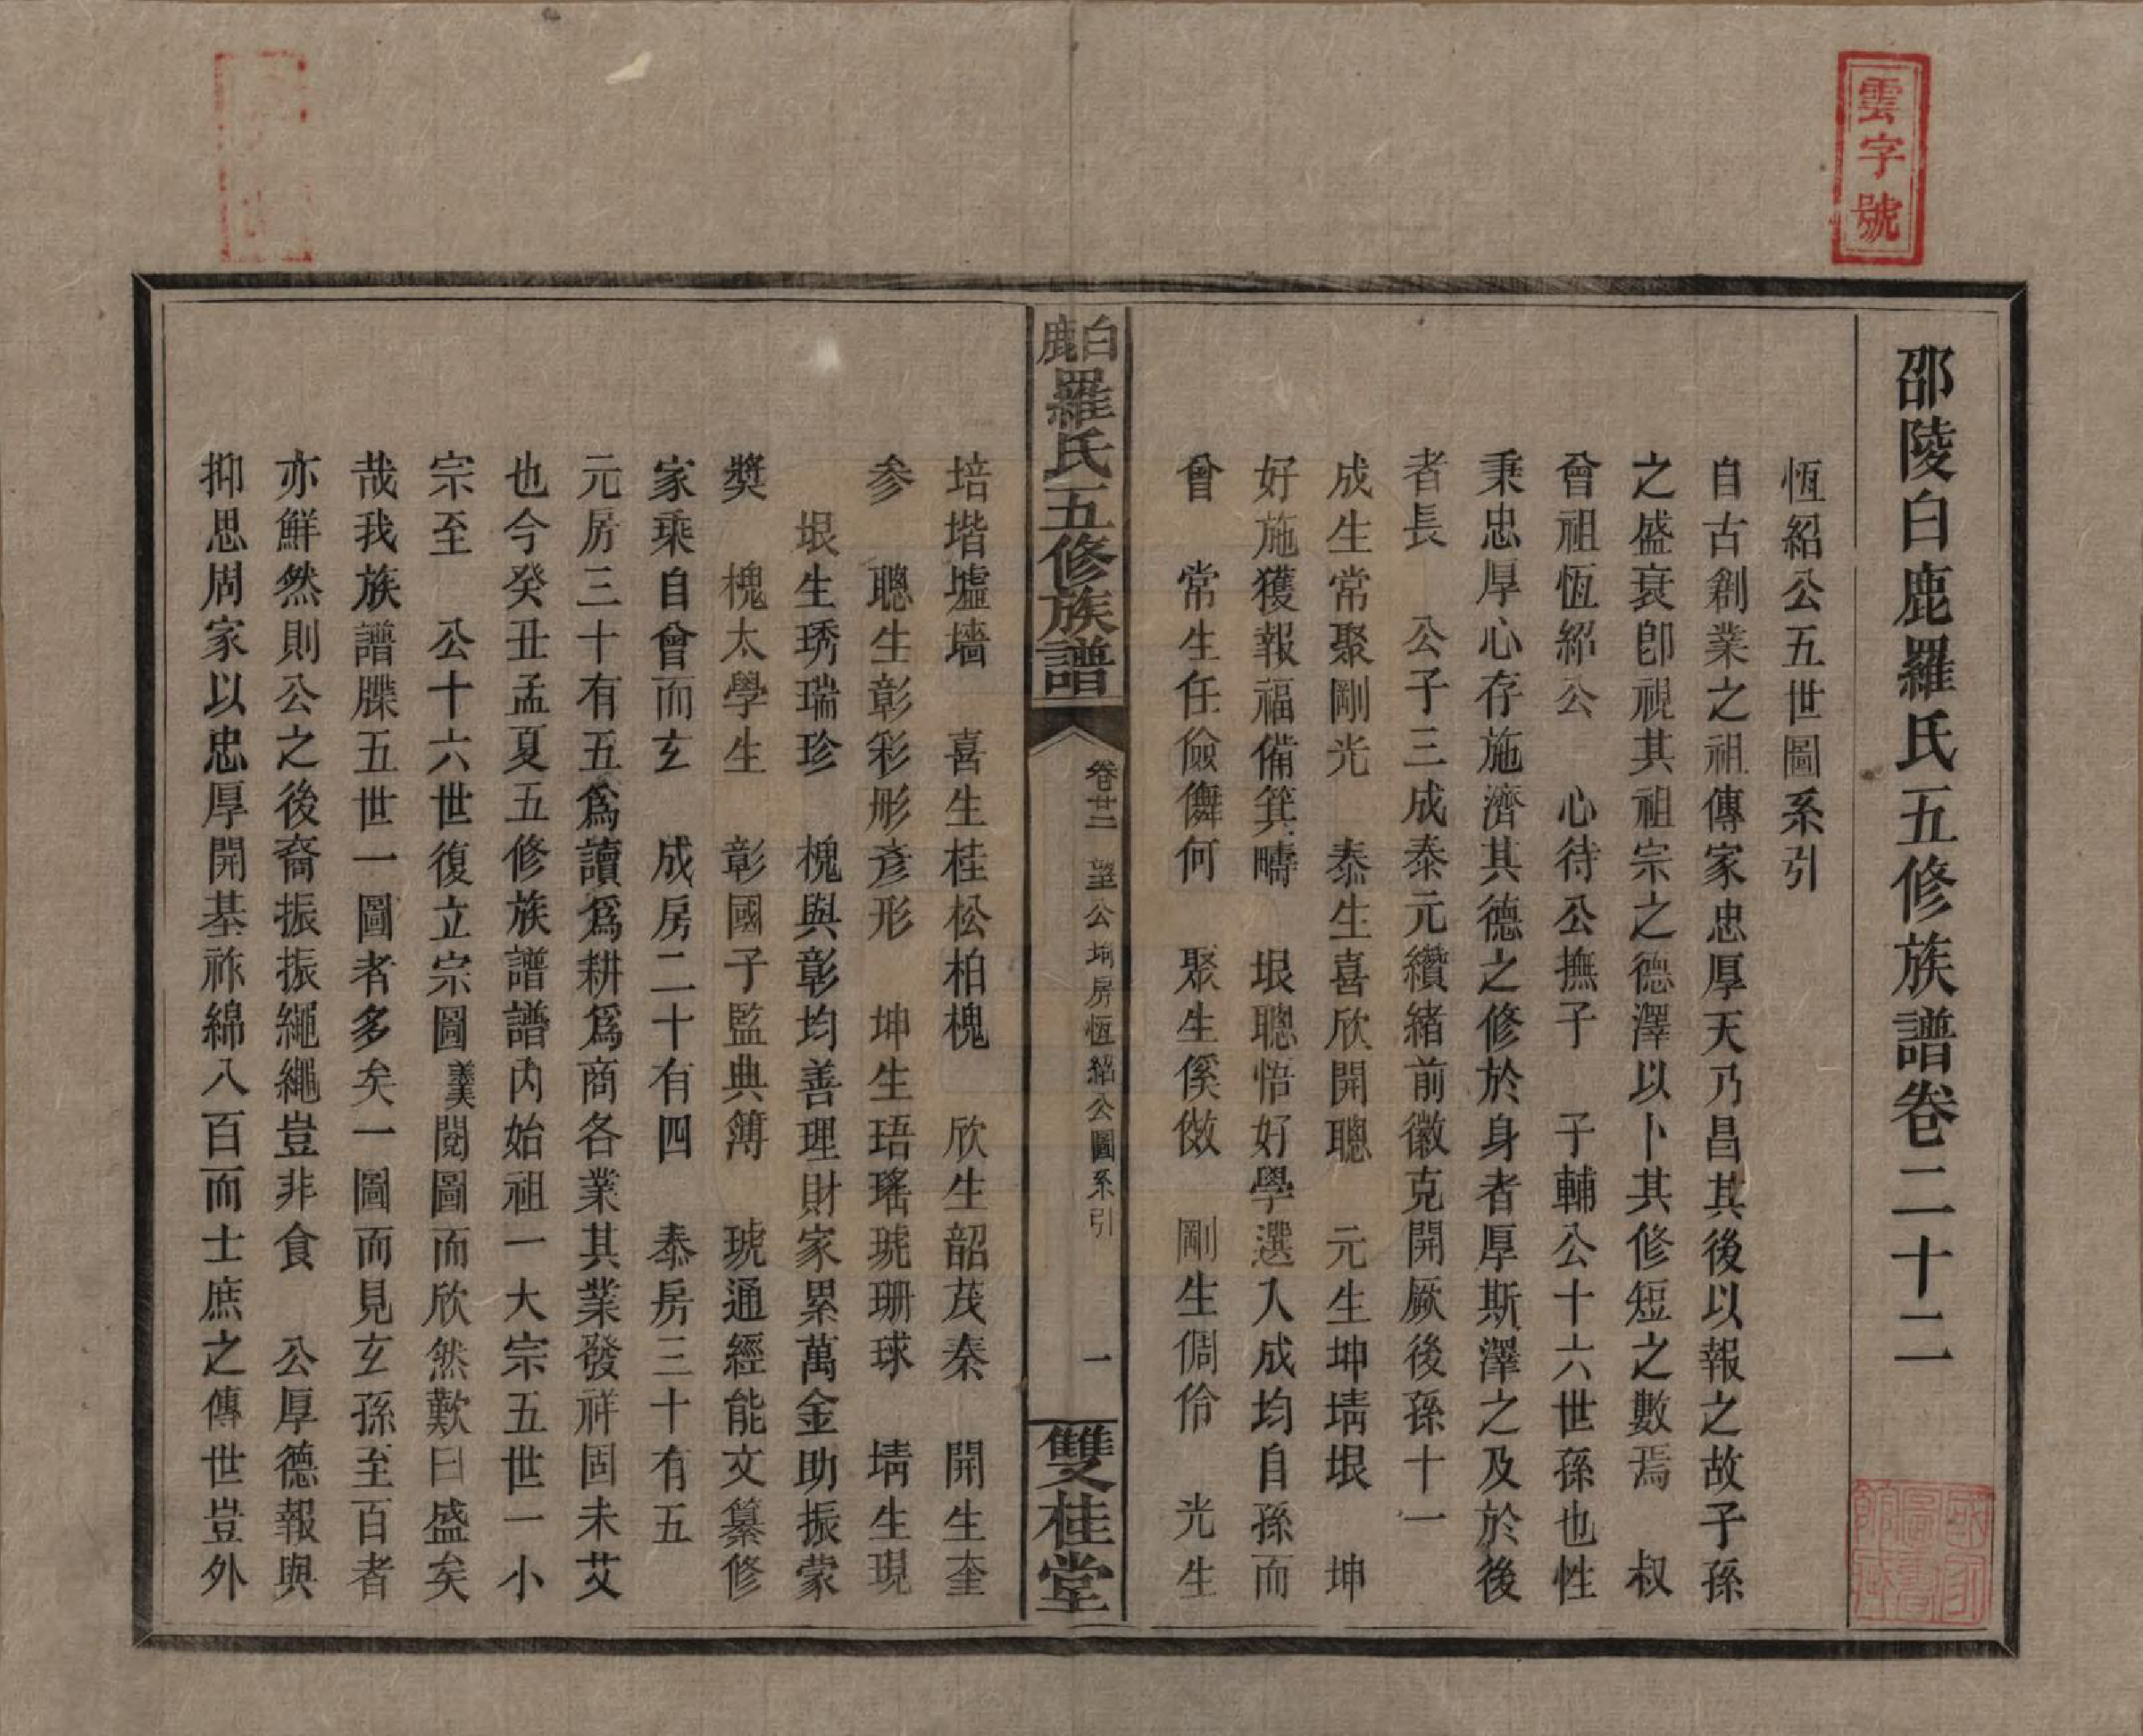 雲字號
邵陵白鹿羅氏五修族譜卷二十二
恆紹公五世圖系引
自古創業之祖傳家忠厚天乃昌其後以報之故子孫
之盛衰卽視其祖宗之德澤以卜其修短之數焉　叔
曾祖恆紹公　心待公撫子　子輔公十六世孫也性
秉忠厚心存施濟其德之修於身者厚斯澤之及於後
者長　公子三成泰元纘緒前徽克開厥後孫十一
成生常聚剛光　泰生喜欣開聰　元生坤埥垠　坤
好施獲報福備箕疇　垠聰悟好學選入成均自孫而
曾　常生任儉儛何　聚生傒傚　剛生倜伶　光生
白鹿羅氏五修族譜
卷廿二　望公坿房恆紹公圖系引　一
雙桂堂
培堦墟墻　喜生桂松柏槐　欣生韶茂秦　開生奎
参　聰生彰彩彤彥形　坤生珸瑤琥珊球　埥生現
垠生琇瑞珍　槐與彰均善理財家累萬金助振蒙
獎　槐太學生　彰國子監典簿　琥通經能文纂修
家乘自曾而玄　成房二十有四　泰房三十有五
元房三十有五爲讀爲耕爲商各業其業發祥固未艾
也今癸丑孟夏五修族譜譜內始祖一大宗五世一小
宗至　公十六世復立宗圖義美閱圖而欣然歎曰盛矣
哉我族譜牒五世一圖者多矣一圖而見玄孫至百者
亦鮮然則公之後裔振振繩繩豈非食　公厚德報與
抑思周家以忠厚開基祚綿八百而士庶之傳世豈外